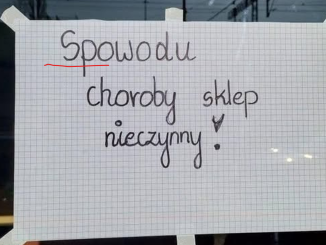 Spowodu
choroby sklep
nieczynny!